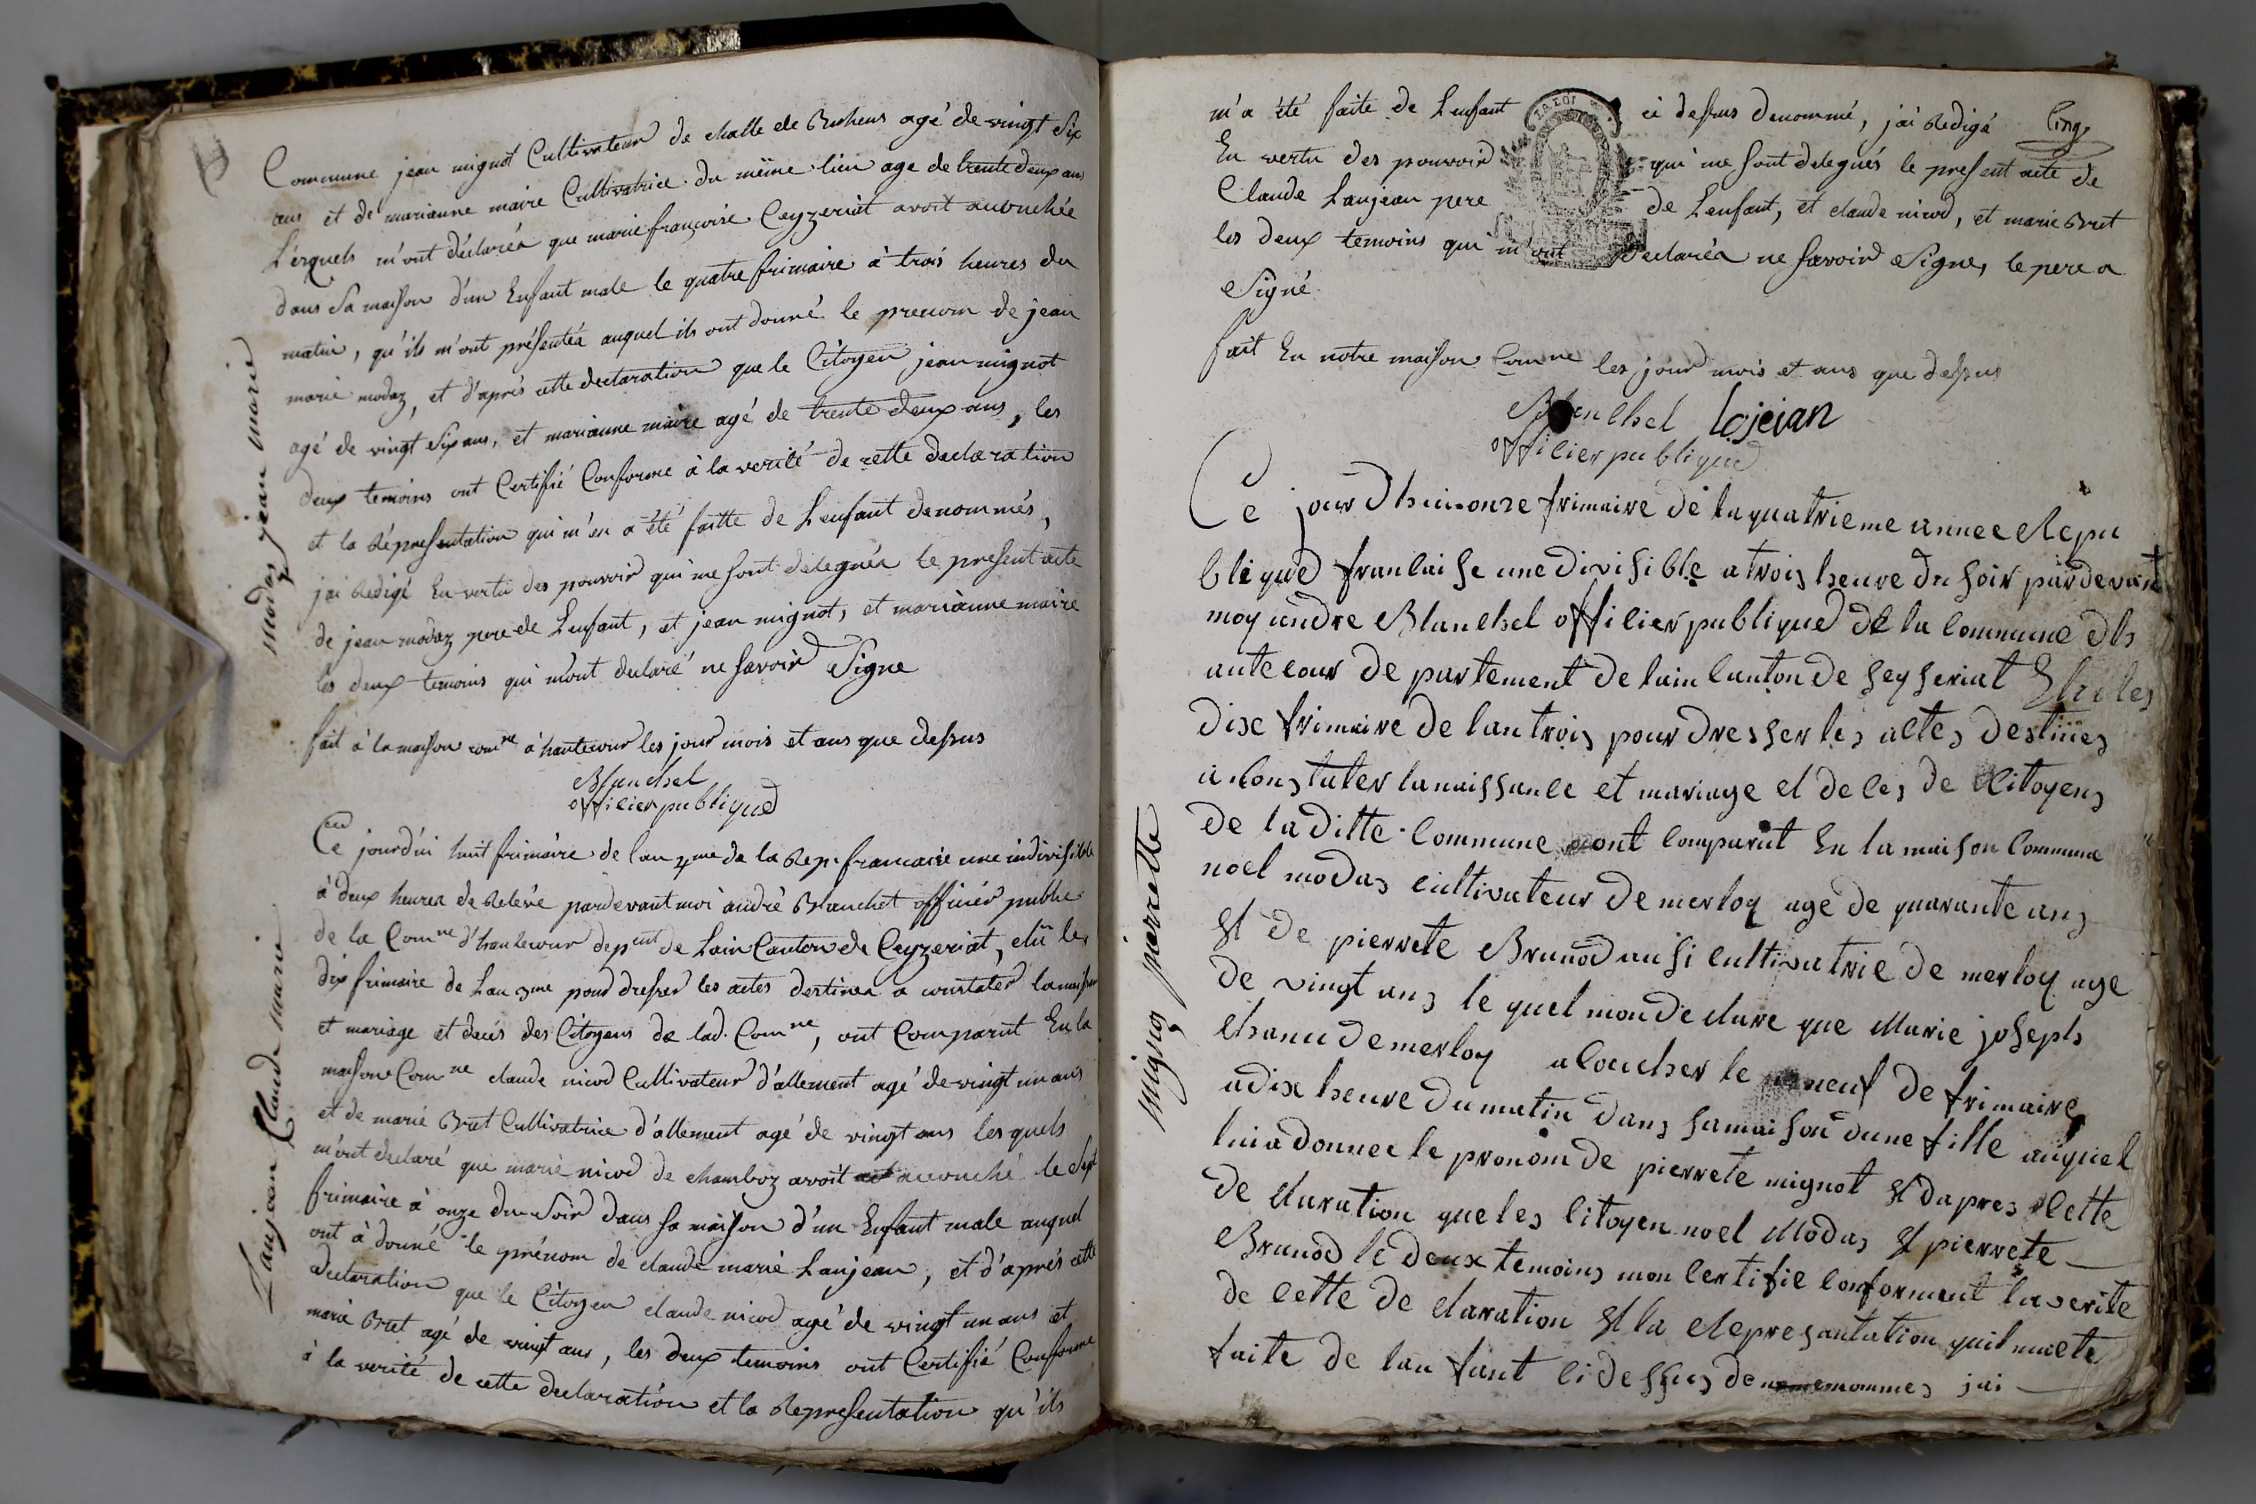 Commune jean mignot Cultivateur de challe de Bohens agé de vingt Six
ans et de marianne maire Cultivatrice du même lieu age de trente deux ans
Lesquels m'ont déclarés que marie françoise Ceyzeriat avoit accouchée
dans Sa maison d'un Enfant male le quatre frimaire à trois heures du
matin, qu'ils m'ont présentés auquel ils ont donné le prenom de jean
marie modaz, et d'après cette declaration que le Citoyen jean mignot
agé de vingt Six ans, et marianne maire agé de trente deux ans, les
deux temoins ont Certifié Conforme à la verité de cette declaration
et la Représentation qui m'en a été faitte de L'enfant denommés,
j'ai Redigé En vertu des pouvoir qui me sont delegués le present acte
de jean modaz pere de L'enfant, et jean mignot, et marianne maire
les deux temoins qui m'ont declaré ne Savoir Signe
fait à la maison comne à hautecour les jour mois et ans que dessus
Blanchet
officier publique
modas jean marie
Ce jourd'ui huit frimaire de l'an 4me de la Rep. francaise une indivisible
à deux heures de Relevé pardevant moi andré Blanchet officier public
de la Comne d'hautecour depent de Lain Canton de Ceyzeriat, élu le
dix frimaire de Lan 3me pour dresser les actes destinés a constater la naissan
et mariage et decès des Citoyens de lad. Comne, ont Comparut En la
maison Comne claude nicod Cultivateur d'allement agé de vingt un ans
et de marie Bret Cultivatrice d'allement agé de vingt ans lesquels
m'ont declaré que marie nicod de chamboz avoit accouché le Sept
frimaire à onze du Soir dans Sa maison d'un Enfant male auquel
ont à donné le prénom de claude marie Lanjean, et d'après cette
declaration que le Citoyen claude nicod agé de vingt un ans et
marie Bret agé de vingt ans, les deux temoins ont Certifié Conforme
à la verité de cette declaration et la Representation qu'ils
Lanjean Claude marie
m'a été faite de L'enfant ci dessus denommé, j'ai Redigé
Cinq
En vertu des pouvoir qui me sont delegués le present acte de
Claude Lanjean pere de L'enfant, et claude nicod, et marie Bret
les deux temoins qui m'ont declarés ne Savoir Signe, le pere a
Signé.
fait En notre maison Comne les jour mois et ans que dessus
Blanchet lojeian
officier publique
Ce jour dhuis onze frimaire de la quatrieme annee Repu
blique francaise une divisible a trois heure du soir par devant
moy andre Blanchet officier publique de la Commune dh
autecour de partement de lain canton de seyseriat Elu les
dixe frimaire de lan trois pour dresser les actes destinés
a Constater la naissance et mariage et deces de Citoyens
de la ditte Commune ont comparut En la maison Commune
noel modas cultivateur de merloy age de quarante ans
et de pierrete Brunod ausi cultivatrie de merloy age
de vingt ans le quel mon declare que Marie joseph
chanu de merloy acoucher le neuf de frimaire
a dix heure du matin dans sa maison dune fille auquel
lui a donnee le pronom de pierrete mignot et dapres Cette
de claration que les citoyen noel Modas et pierrete
Brunod le deux temoins mon certifie conforment la verite
de cette de claration et la Represantation quil maete
faite de lan fant ci dessus denommes jai
mignot pierrette